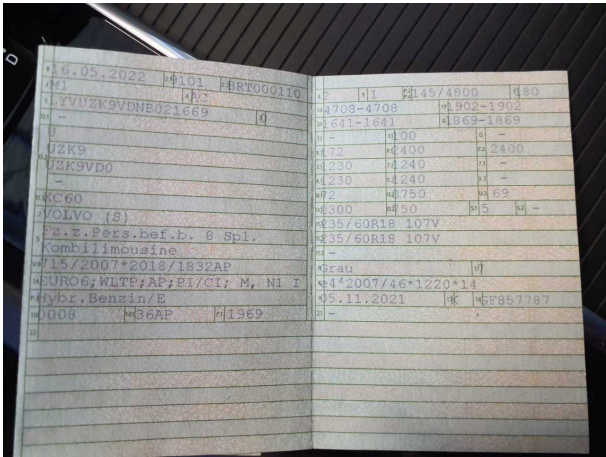 16.05.2022 9101 BRT000110
M1 AC
YVUZK9VDNB021669
-
U
UZK9
UZK9VD0
-
XC60
VOLVO (S)
Fz.z.Pers.bef.b. 8 Spl.
Kombilimousine
715/2007*2018/1832AP
EURO6;WLTP;AP;PI/CI; M, N1 I
Hybr.Benzin/E
0008 36AP 1969
2 1 145/4800 180
4708-4708 1902-1902
1641-1641 1869-1869
- 100 -
172 2400 2400
1230 1240 -
1230 1240 -
72 3750 69
2300 750 5 -
235/60R18 107V
235/60R18 107V
-
Grau
e4*2007/46*1220*14
05.11.2021 K GF857787
-